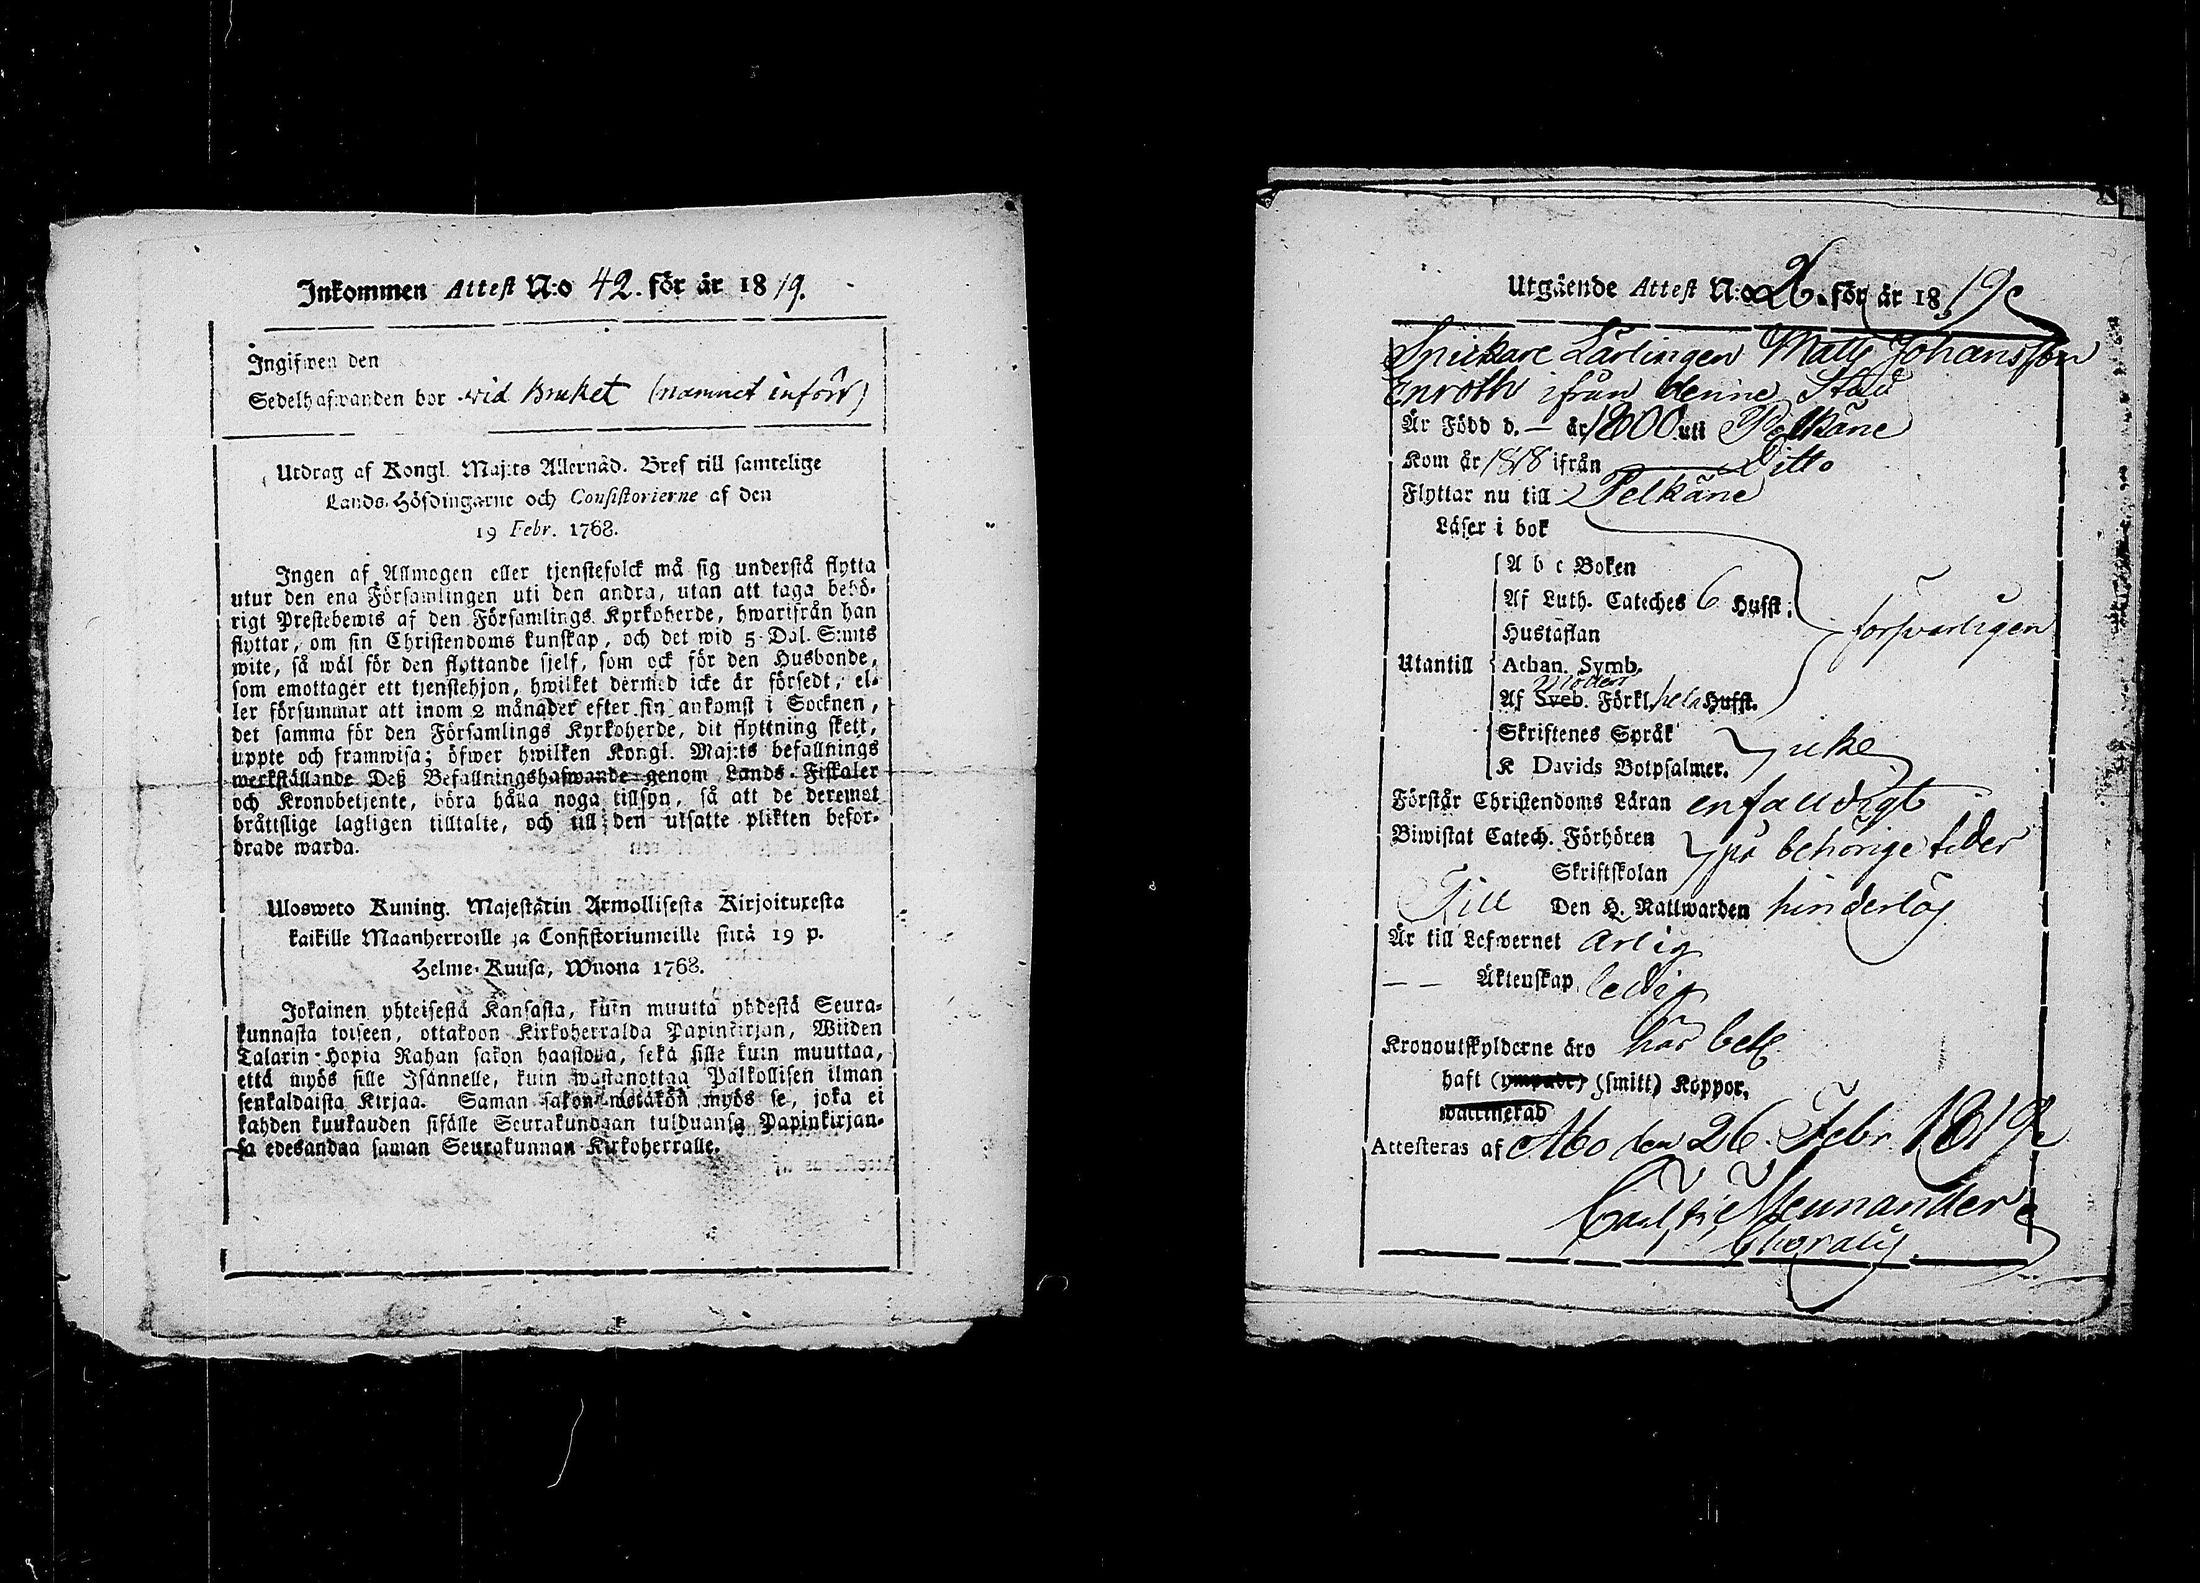 Inkommen Attest N:o 42. för år 1819.
Ingifwen den
Sedelhafwanden bor wid Bruket (namnet infört)
Utdrag af Kongl. Maj:ts Allernåd. Bref till samtelige
Lands-Höfdingarne och Consistorierne af den
19 Febr. 1768.
Ingen af Allmogen eller tjenstefolck må sig understå flytta
utur den ena Församlingen uti den andra, utan att taga behö-
rigt Prestebewis af den Församlings Kyrkoherde, hwarifrån han
flyttar, om sin Christendoms kunskap, och det wid 5 Dal. S:mts
wite, så wäl för den flyttande sjelf, som ock för den Husbonde,
som emottager ett tjenstehjon, hwilket dermed icke är försedt, el-
ler försummar att inom 2 månader efter sin ankomst i Socknen,
det samma för den Församlings Kyrkoherde, dit flyttning skett,
uppte och framwisa; öfwer hwilken Kongl. Maj:ts befallnings
werkställande Deß Befallningshafwande genom Lands-Fiskaler
och Kronobetjente, böra hålla noga tillsyn, så att de deremot
bråttslige lagligen tilltalte, och till den utsatte plikten befor-
drade warda.
Ulosweto Kuning. Majestätin Armollisesta Kirjoituxesta
kaikille Maanherroille ja Consistoriumeille siitä 19 p.
Helme-Kuusa, Wuona 1768.
Jokainen yhteisestä Kansasta, kuin muutta yhdestä Seura-
kunnasta toiseen, ottakoon Kirkoherralda Papinkirjan, Wiiden
Talarin Hopia Rahan sakon haastolla, sekä sille kuin muuttaa,
että myös sille Isännelle, kuin wastanottaa Palkollisen ilman
senkaldaista Kirjaa. Saman sakon wetäkön myös se, joka ei
kahden kuukauden sisälle Seurakundaan tulduansa Papinkirjan-
sa edesandaa saman Seurakunnan Kirkoherralle.
Utgående Attest N:o 26. för år 1819
Snickare Lärlingen Matts Johansson
Enroth ifrån denne Stad
Är Född d. — år 1800 uti Pelkäne
Kom år 1818 ifrån Ditto
Flyttar nu till Pelkäne
Läser i bok
A b c Boken
Af Luth. Cateches 6 Hufst.
Hustaflan
försvarligen
Utantill Athan. Symb.
Af Sveb. Förkl. hela Hufst.
Skriftenes Språk
icke
K Davids Botpsalmer.
Förstår Christendoms Läran enfaldigt
Biwistat Catech. Förhören
på behörige tider
Skriftskolan
Till Den H. Nattwarden hinderlös
Är till Lefwernet ärlig
— — Äktenskap ledig
Kronoutskylderne äro här bet.
haft (ympade) (smitt) Koppor.
waccinerad
Attesteras af Åbo den 26. Febr. 1819
Mennander